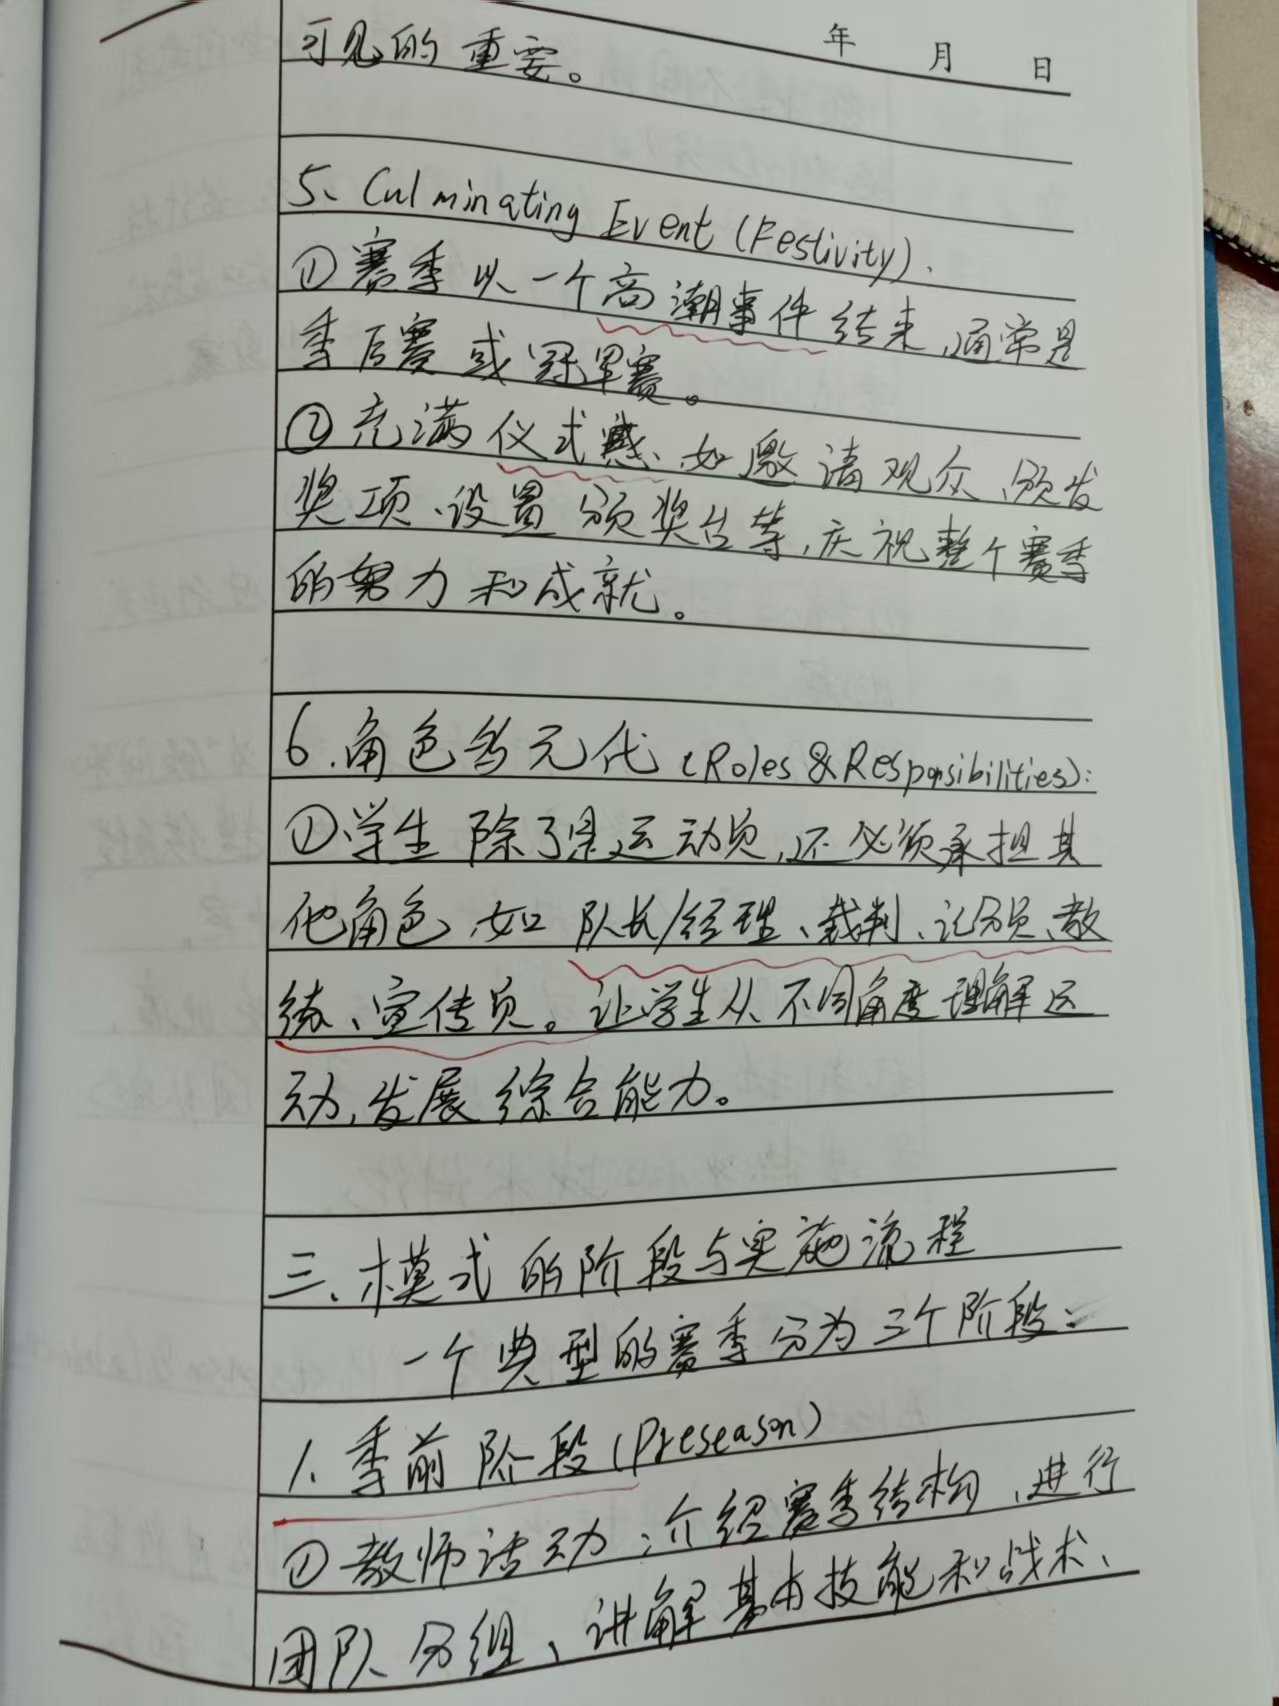 年 月 日
可见的重要。
5、Culminating Event (Festivity).
①赛季以一个高潮事件结束,通常是
季后赛或冠军赛。
②充满仪式感、如邀请观众、颁发
奖项、设置颁奖台等,庆祝整个赛季
的努力和成就。
6.角色多元代(Roles & Responsibilities):
①学生除了是运动员,还必须承担其
他角色,如队长/经理、裁判、记分员、教
练、宣传员。让学生从不同角度理解运
动,发展综合能力。
三、模式的阶段与实施流程
一个典型的赛季分为三个阶段:
1.季前阶段(Preseason)
①教师活动:介绍赛季结构、进行
团队分组、讲解基本技能和战术、